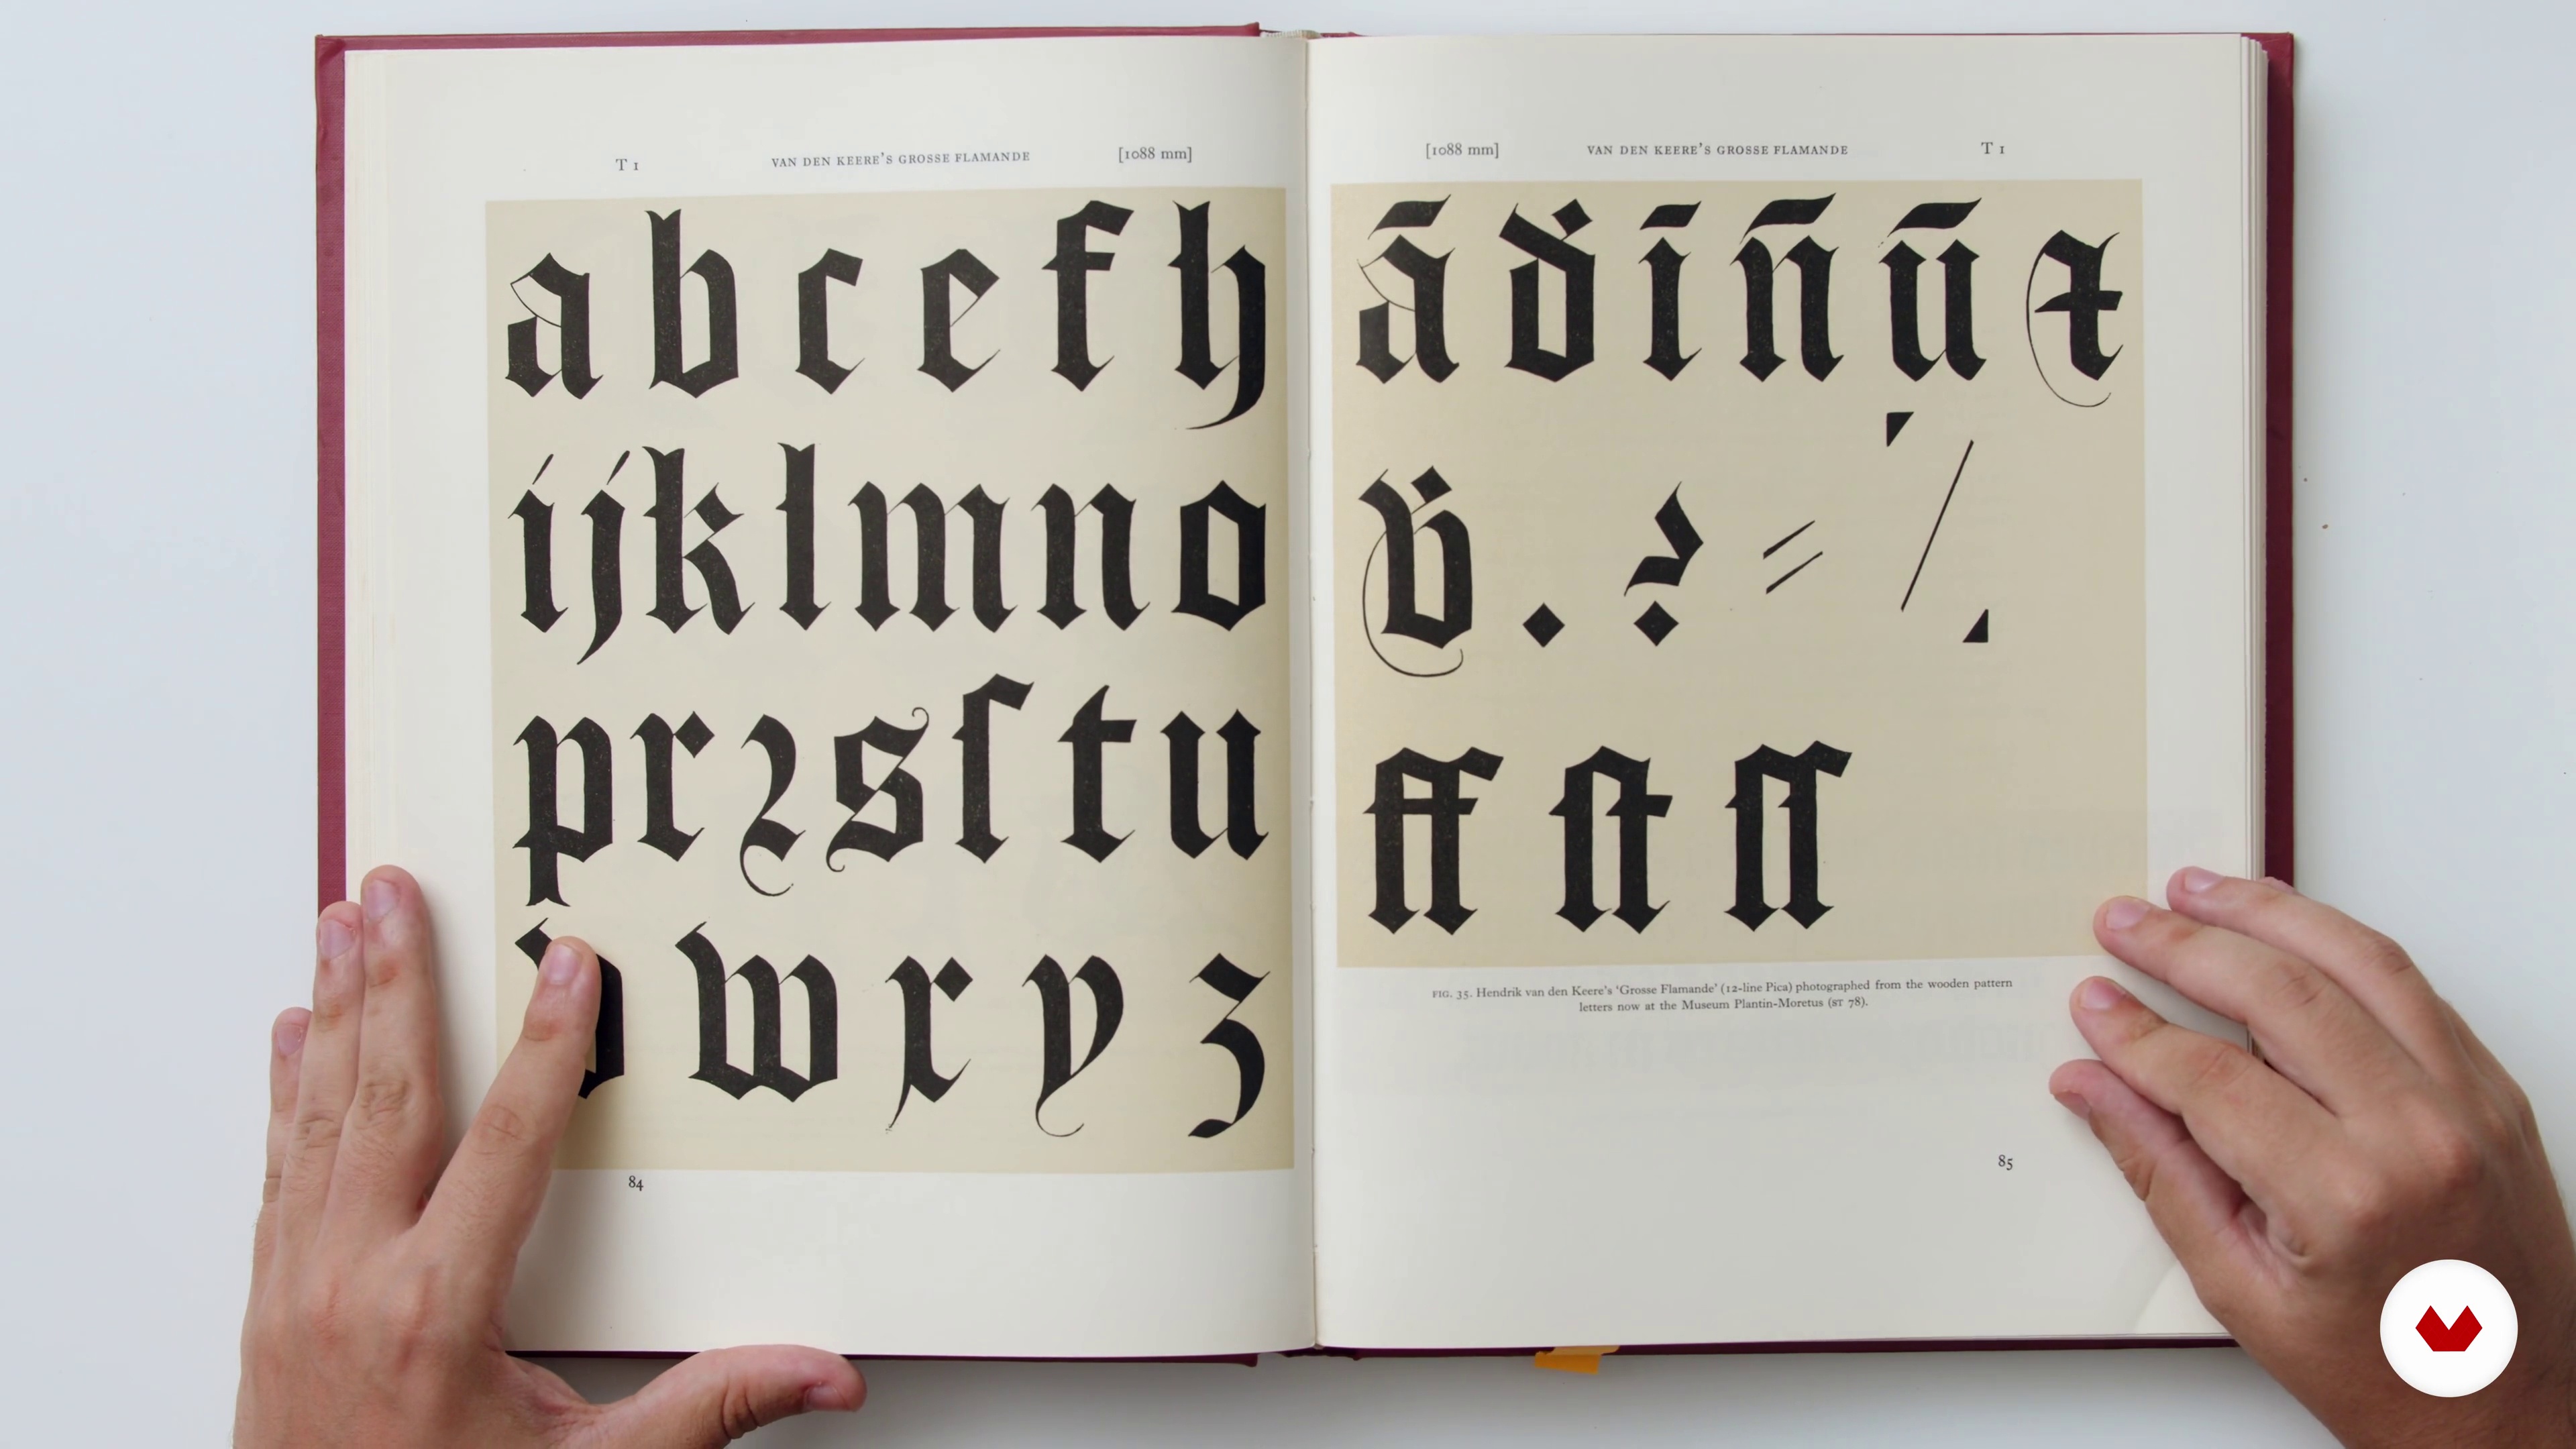 T 1 VAN DEN KEERE'S GROSSE FLAMANDE [1088 mm]
a b c e f h
i j k l m n o
p r ꝛ s ſ t u
v w x y z
84
[1088 mm] VAN DEN KEERE'S GROSSE FLAMANDE T 1
ā d̄ ī n̄ ū
. ? = /
ff ſt ſſ
FIG. 35. Hendrik van den Keere's 'Grosse Flamande' (12-line Pica) photographed from the wooden pattern
letters now at the Museum Plantin-Moretus (ST 78).
85